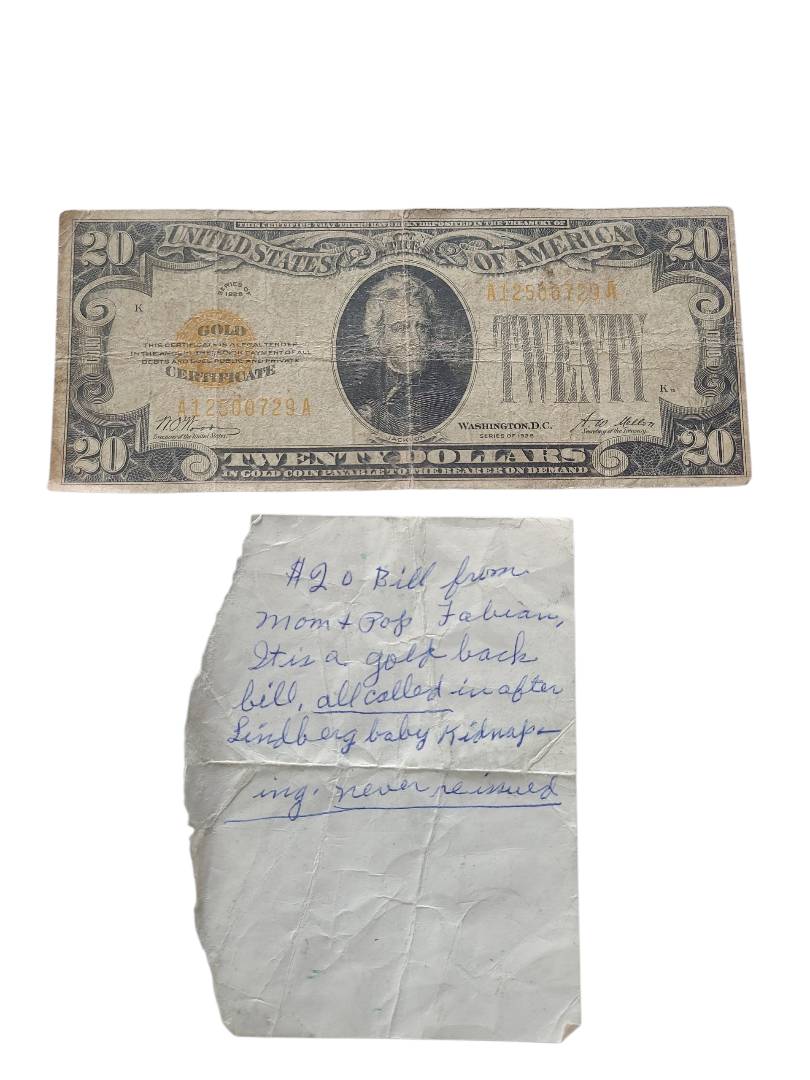 THIS CERTIFIES THAT THERE HAVE BEEN DEPOSITED IN THE TREASURY OF
20 UNITED STATES THE OF AMERICA 20
SERIES OF
1928
A12500729A
K
GOLD
THIS CERTIFICATE IS A LEGAL TENDER
IN THE AMOUNT THEREOF IN PAYMENT OF ALL
DEBTS AND DUES PUBLIC AND PRIVATE
CERTIFICATE
TWENTY
K
A12500729A
WASHINGTON, D.C.
SERIES OF 1928
W.O. Woods
Treasurer of the United States
JACKSON
A. W. Mellon
Secretary of the Treasury
20 TWENTY DOLLARS 20
IN GOLD COIN PAYABLE TO THE BEARER ON DEMAND
$20 Bill from
Mom + Pop Fabian,
It is a gold back
bill, all called in after
Lindberg baby Kidnap-
ing. never reissued